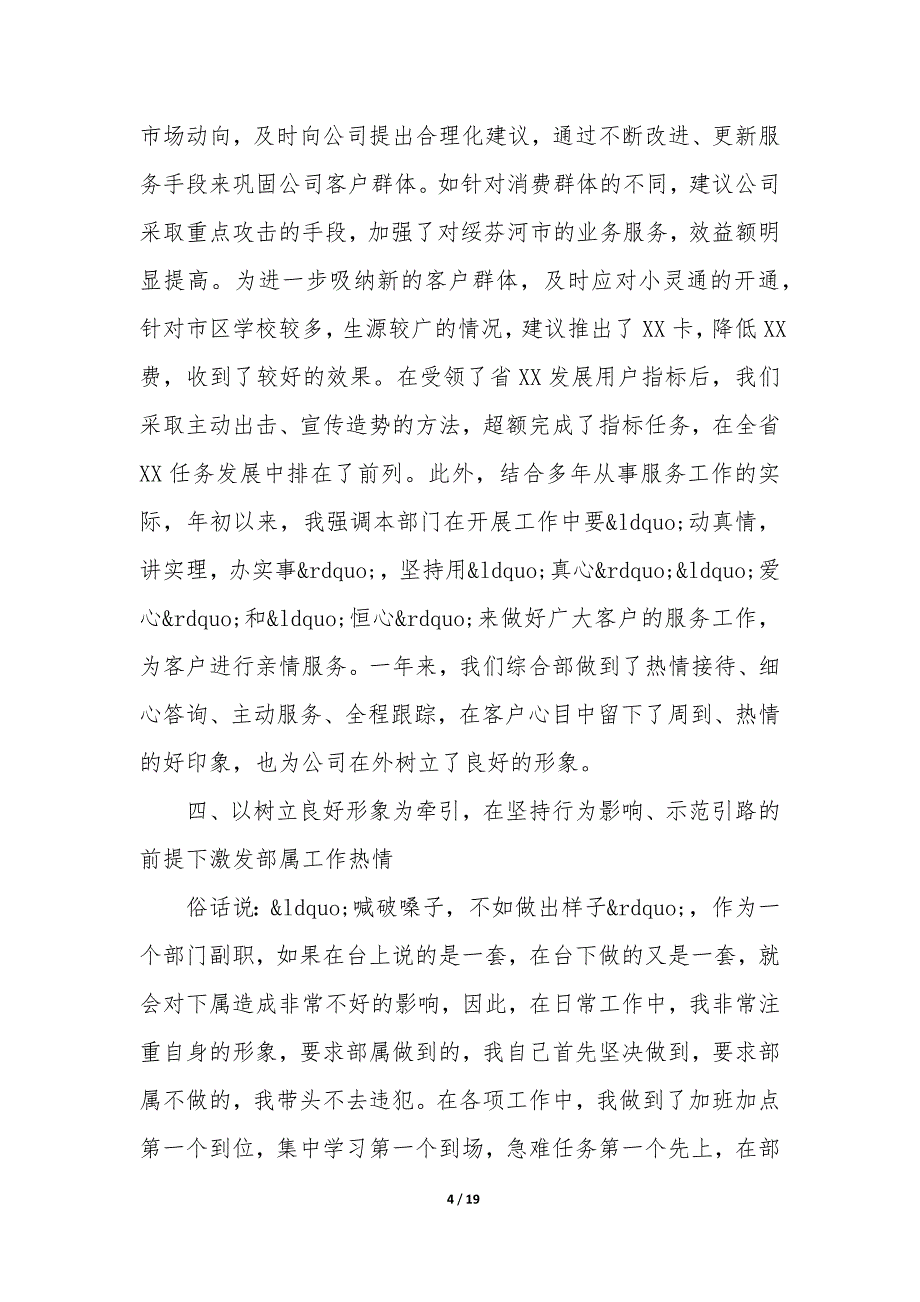 市场动向，及时向公司提出合理化建议，通过不断改进、更新服
务手段来巩固公司客户群体。如针对消费群体的不同，建议公司
采取重点攻击的手段，加强了对绥芬河市的业务服务，效益额明
显提高。为进一步吸纳新的客户群体，及时应对小灵通的开通，
针对市区学校较多，生源较广的情况，建议推出了 XX 卡，降低 XX
费，收到了较好的效果。在受领了省 XX 发展用户指标后，我们
采取主动出击、宣传造势的方法，超额完成了指标任务，在全省
XX 任务发展中排在了前列。此外，结合多年从事服务工作的实
际，年初以来，我强调本部门在开展工作中要&ldquo;动真情，
讲实理，办实事&rdquo;，坚持用&ldquo;真心&rdquo;&ldquo;爱
心&rdquo;和&ldquo;恒心&rdquo;来做好广大客户的服务工作，
为客户进行亲情服务。一年来，我们综合部做到了热情接待、细
心答询、主动服务、全程跟踪，在客户心目中留下了周到、热情
的好印象，也为公司在外树立了良好的形象。
四、以树立良好形象为牵引，在坚持行为影响、示范引路的
前提下激发部属工作热情
俗话说：&ldquo;喊破嗓子，不如做出样子&rdquo;，作为一
个部门副职，如果在台上说的是一套，在台下做的又是一套，就
会对下属造成非常不好的影响，因此，在日常工作中，我非常注
重自身的形象，要求部属做到的，我自己首先坚决做到，要求部
属不做的，我带头不去违犯。在各项工作中，我做到了加班加点
第一个到位，集中学习第一个到场，急难任务第一个先上，在部
4 / 19